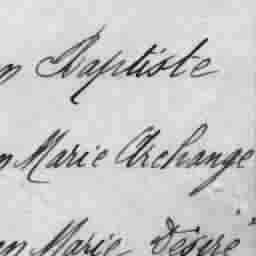 n Baptiste
n Marie Archange
en Marie Désiré